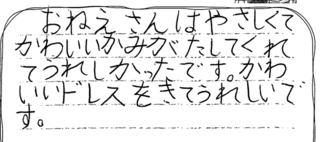 おねえさんはやさしくて
かわいいかみがたしてくれ
てうれしかったです。かわ
いいドレスをきてうれしいで
す。